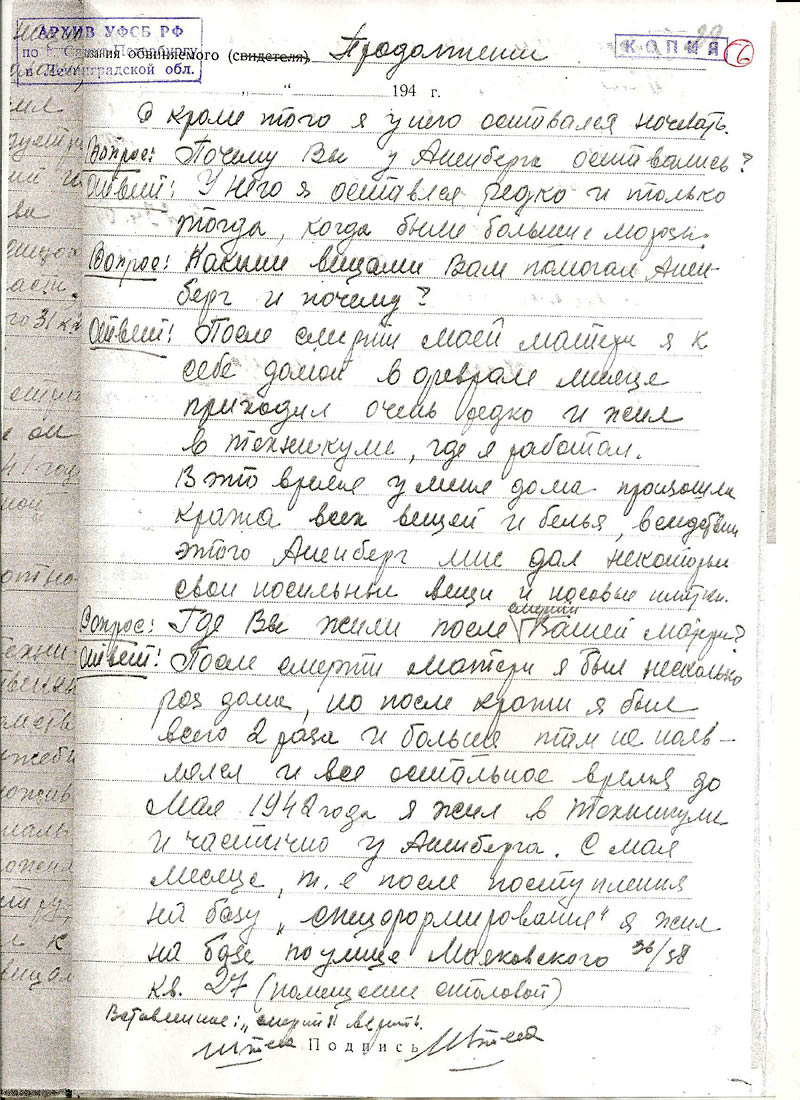 АРХИВ УФСБ РФ
по г. Санкт-Петербургу
и Ленинградской обл.
КОПИЯ
6
зания обвиняемого (свидетеля) Продолжение
„ “ 194 г.
а кроме того я у него оставался ночевать.
Вопрос: Почему Вы у Аненберга оставались?
Ответ: У него я оставался редко и только
тогда, когда были большие морозы.
Вопрос: Какими вещами Вам помогал Анен-
берг и почему?
Ответ: После смерти моей матери я к
себе домой в феврале месяце
приходил очень редко и жил
в техникуме, где я работал.
В это время у меня дома произошла
кража всех вещей и белья, вследствии
этого Аненберг мне дал некоторые
свои носильные вещи и носовые платки.
Вопрос: Где Вы жили после смерти Вашей матери?
Ответ: После смерти матери я был несколько
раз дома, но после кражи я был
всего 2 раза и больше там не появ-
лялся и все остальное время до
Мая 1942 года я жил в техникуме
и частично у Аненберга. С мая
месяца, т.е после поступления
на базу „спецформирования" я жил
на базе по улице Маяковского 36/38
кв. 27 (помещение столовой)
Вставленное: „смерти" верить.
Подпись